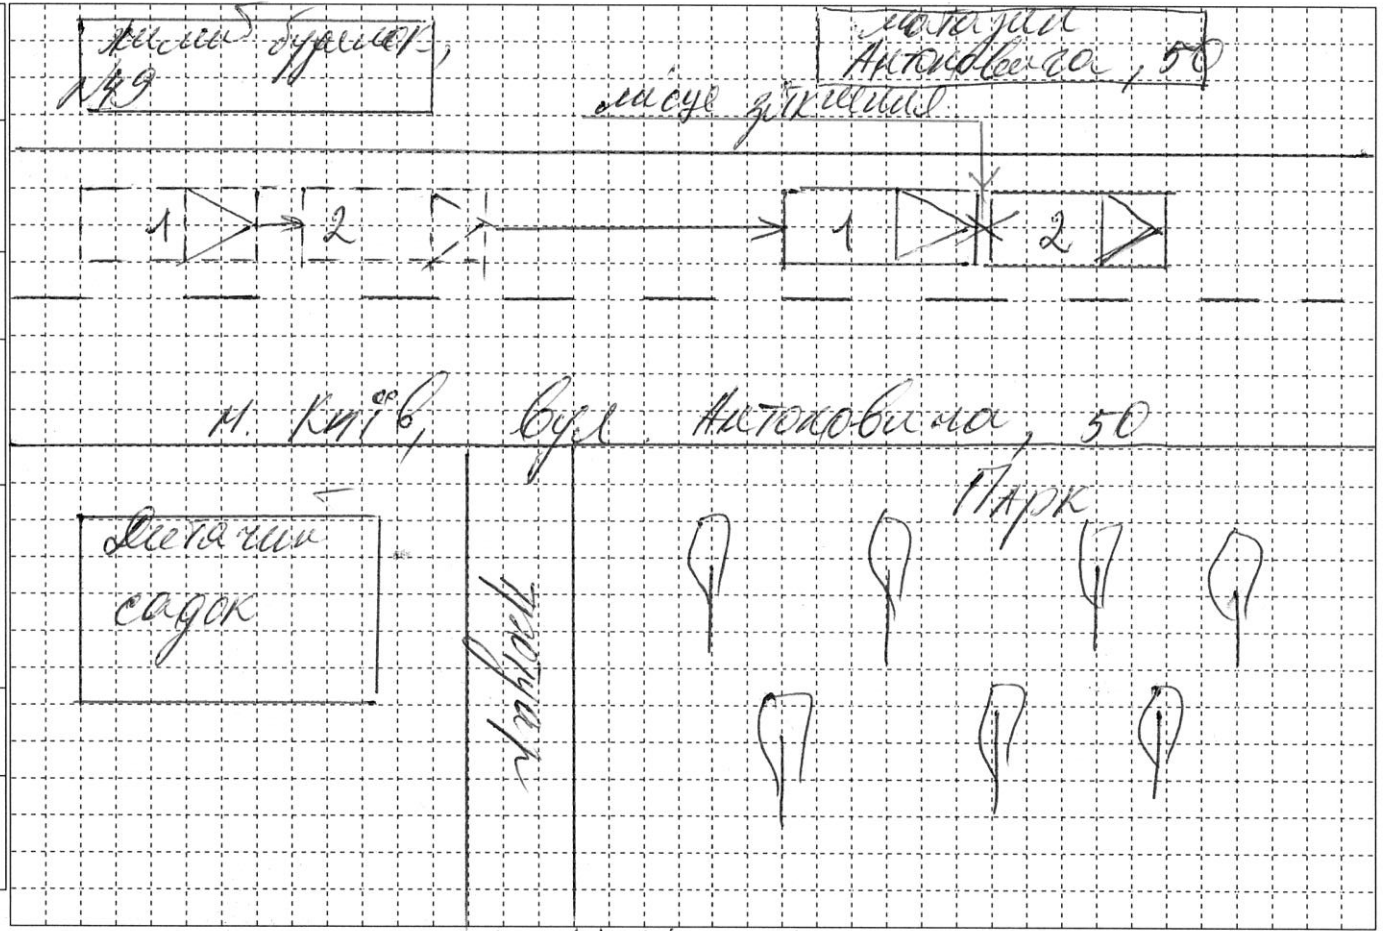 жилий будинок,
№49
магазин
Антоновича, 50
місце зіткнення
1
2
1
2
м. Київ, вул. Антоновича, 50
Парк
Дитячий
садок